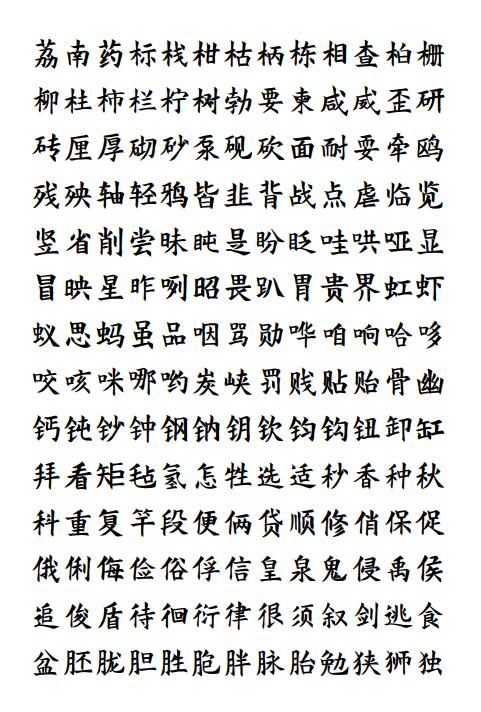 荔南药标栈柑枯柄栋相查柏栅
柳柱柿栏柠树勃要柬咸威歪研
砖厘厚砌砂泵砚砍面耐耍牵鸥
残殃轴轻鸦皆韭背战点虐临览
竖省削尝昧盹是盼眨哇哄哑显
冒映星昨咧昭畏趴胃贵界虹虾
蚁思蚂虽品咽骂勋哗咱响哈哆
咬咳咪哪哟炭峡罚贱贴贻骨幽
钙钝钞钟钢钠钥钦钧钩钮卸缸
拜看矩毡氢怎牲选适秒香种秋
科重复竿段便俩贷顺修俏保促
俄俐侮俭俗俘信皇泉鬼侵禹侯
追俊盾待徊衍律很须叙剑逃食
盆胚胧胆胜胞胖脉胎勉狭狮独